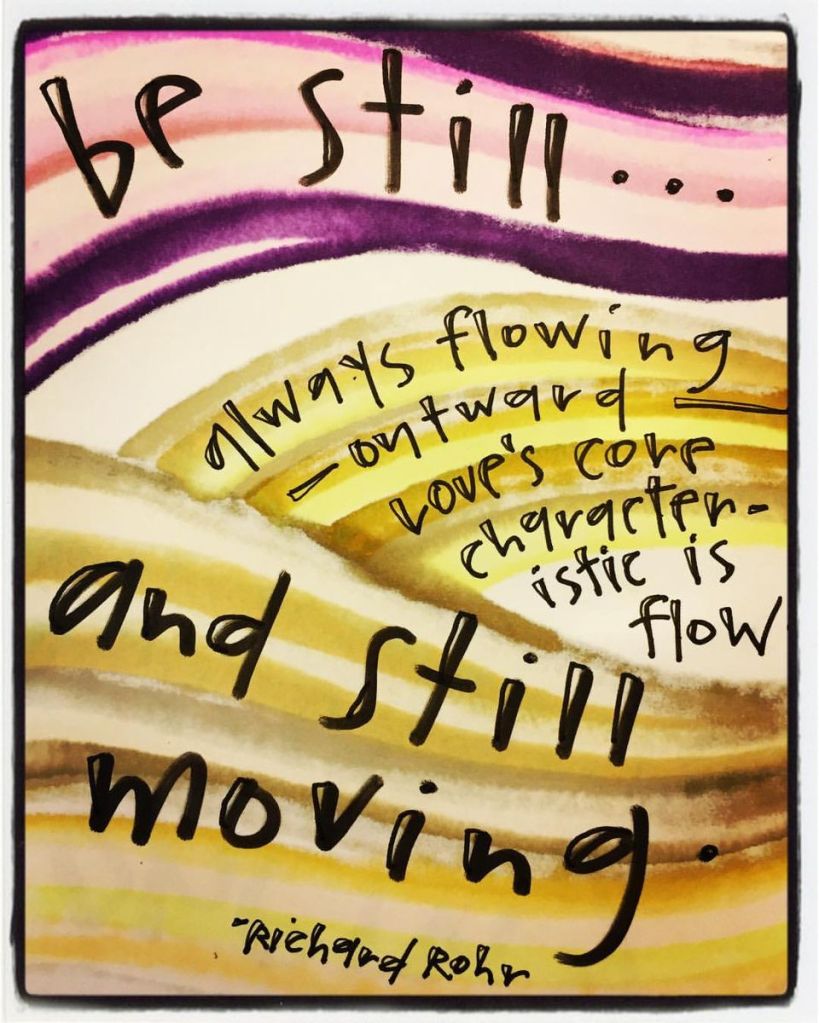 be still...
always flowing
— outward —
Love's core
character-
istic is
flow
and still
moving.
~Richard Rohr